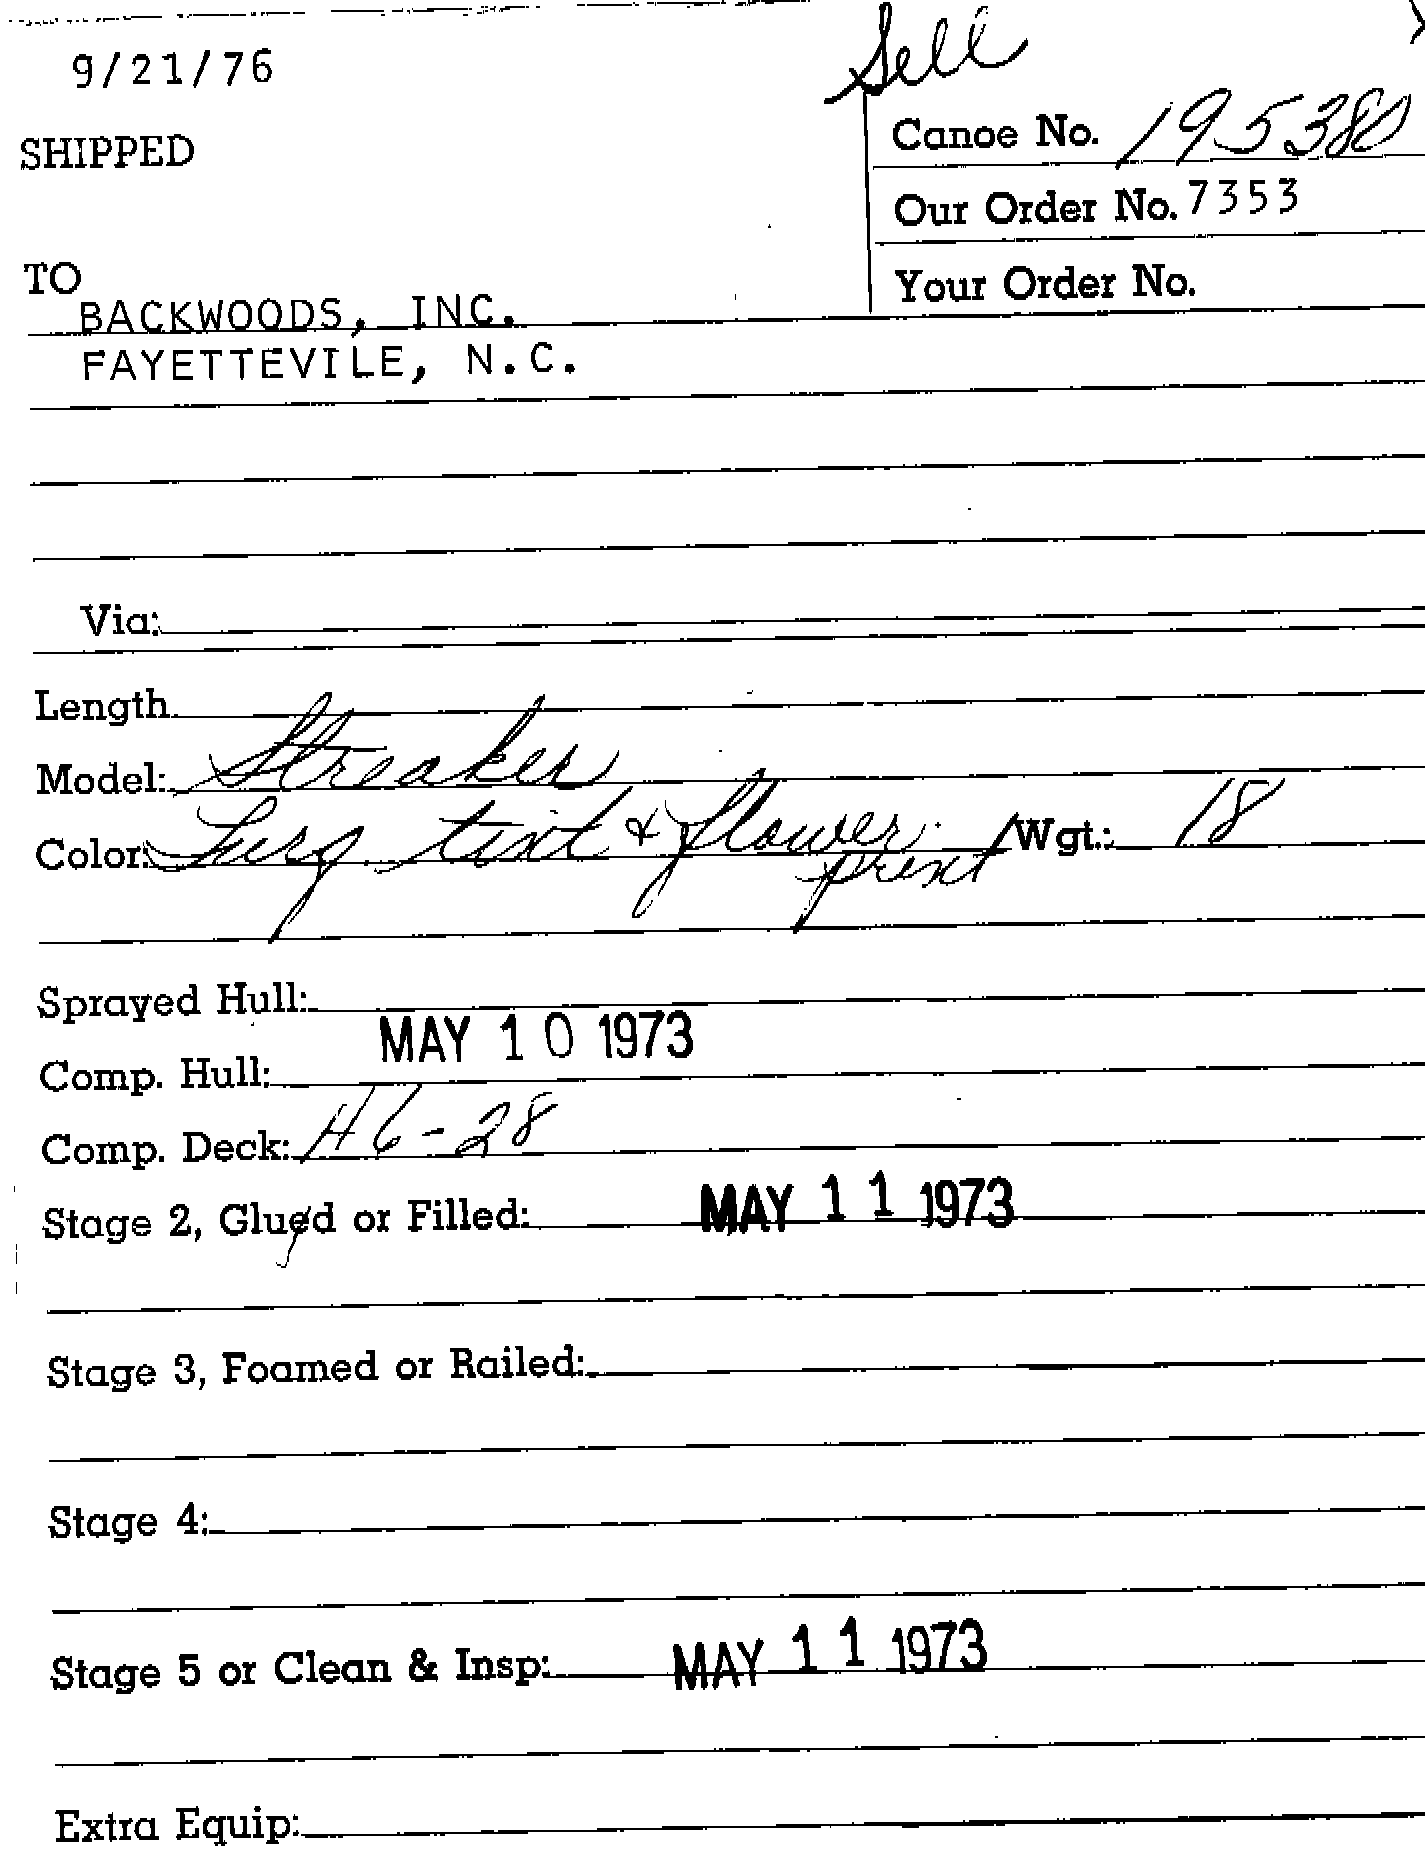 Sell
9/21/76
Canoe No. 195380
SHIPPED
Our Order No. 7353
TO
Your Order No.
BACKWOODS, INC.
FAYETTEVILE, N.C.
Via:
Length
Model: Streaker
Color: Turq. tint & flower print Wgt.: 18
Sprayed Hull:
MAY 10 1973
Comp. Hull:
Comp. Deck: H6-28
Stage 2, Glued or Filled: MAY 11 1973
Stage 3, Foamed or Railed:
Stage 4:
Stage 5 or Clean & Insp: MAY 11 1973
Extra Equip: